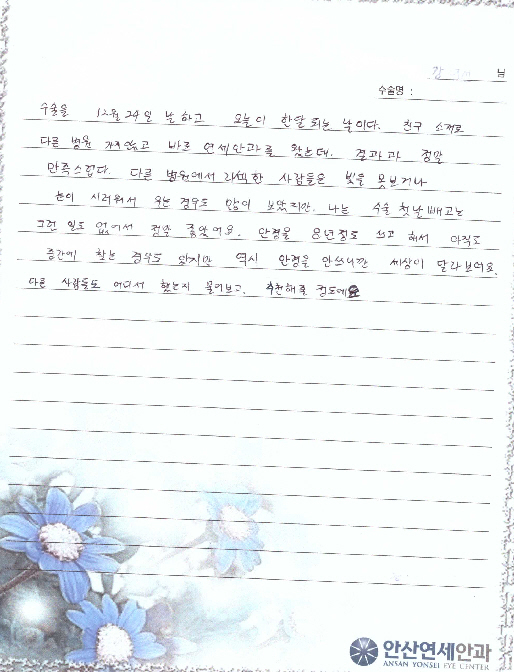 강 님
수술명 :
수술을 12월 24일 날 하고 오늘이 한달 되는 날이다. 친구 소개로
다른 병원 가지않고 바로 연세안과를 왔는데. 결과과 정말
만족스럽다. 다른 병원에서 라색한 사람들은 빛을 못보거나
눈이 시려워서 우는 경우도 많이 보았지만. 나는 수술 첫날 빼고는
그런 일도 없어서 정말 좋았어요. 안경을 8년정도 쓰고 해서 아직도
중간에 찾는 경우도 있지만 역시 안경을 안쓰니깐 세상이 달라보여요.
다른 사람들도 어디서 했는지 물어보고. 추천해줄 정도에요
안산연세안과
ANSAN YONSEI EYE CENTER